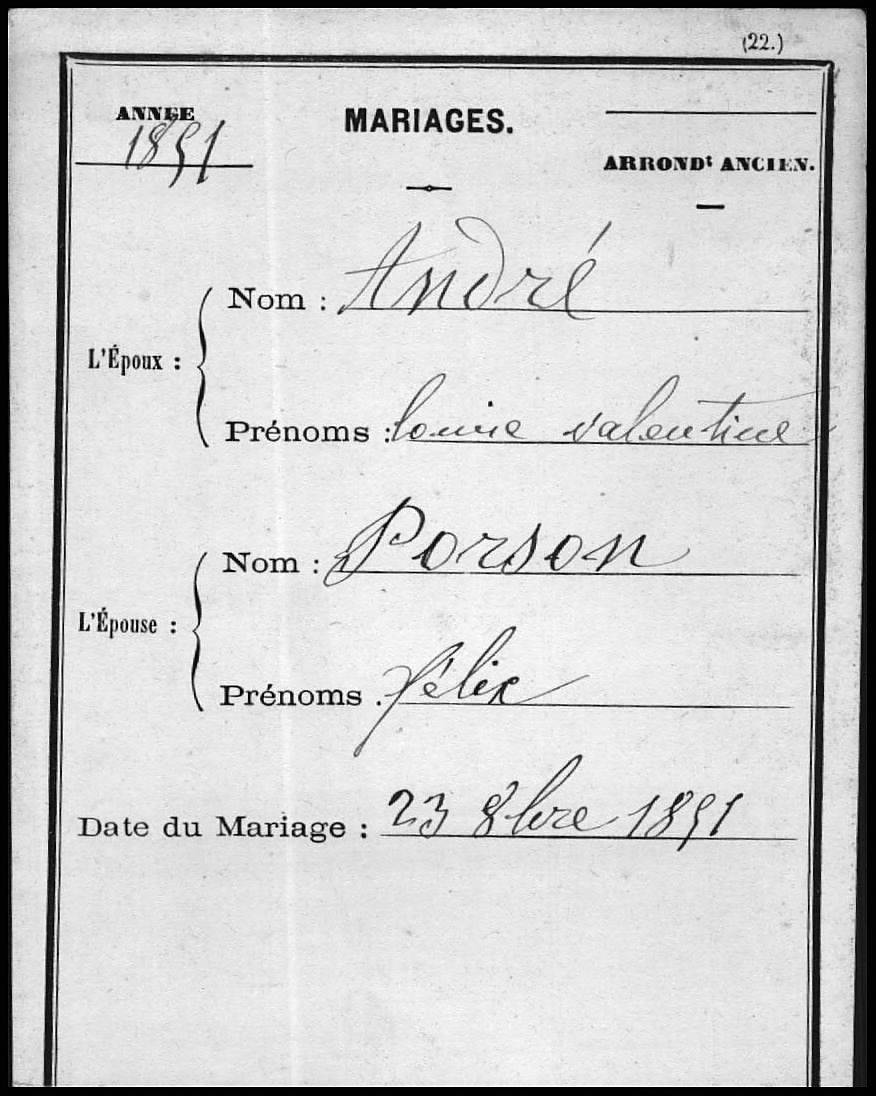 (22.)
ANNÉE
1851
MARIAGES.
ARRONDt ANCIEN.
L'Époux :
Nom : André
Prénoms : louise valentine
L'Épouse :
Nom : Porson
Prénoms . félix
Date du Mariage : 23 8bre 1851